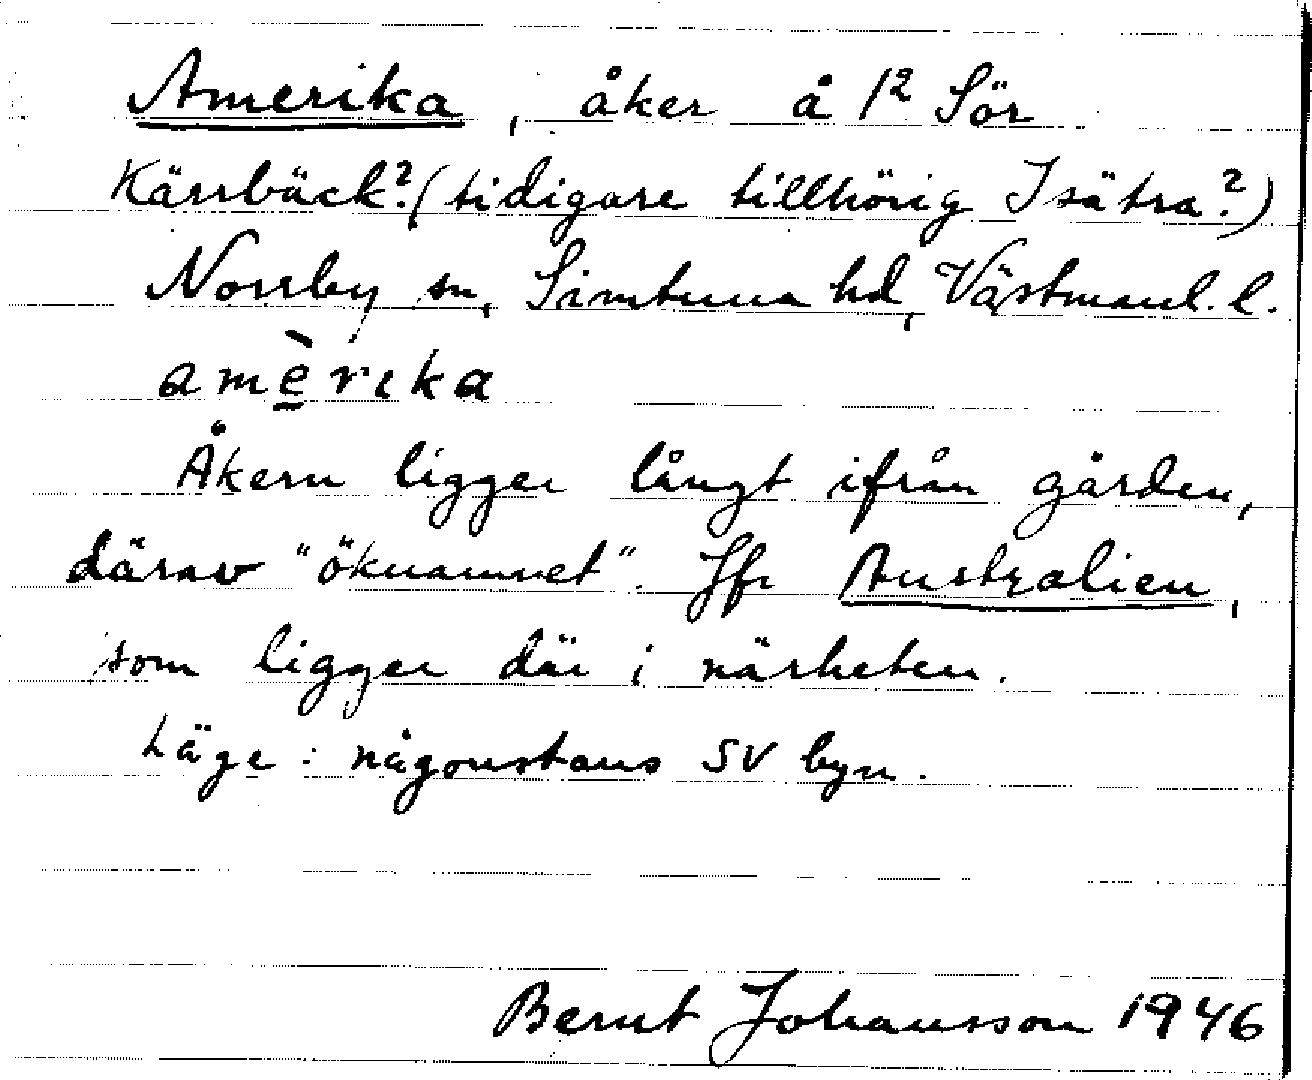 Amerika, åker å 1² Sör
Kärrbäck? (tidigare tillhörig Isätra?)
Norrby sn, Simtuna hd, Västmanl. l.
amèrika
Åkern ligger långt ifrån gården,
därav "öknamnet". Jfr Australien,
som ligger där i närheten.
Läge: någonstans SV byn.
Bernt Johansson 1946